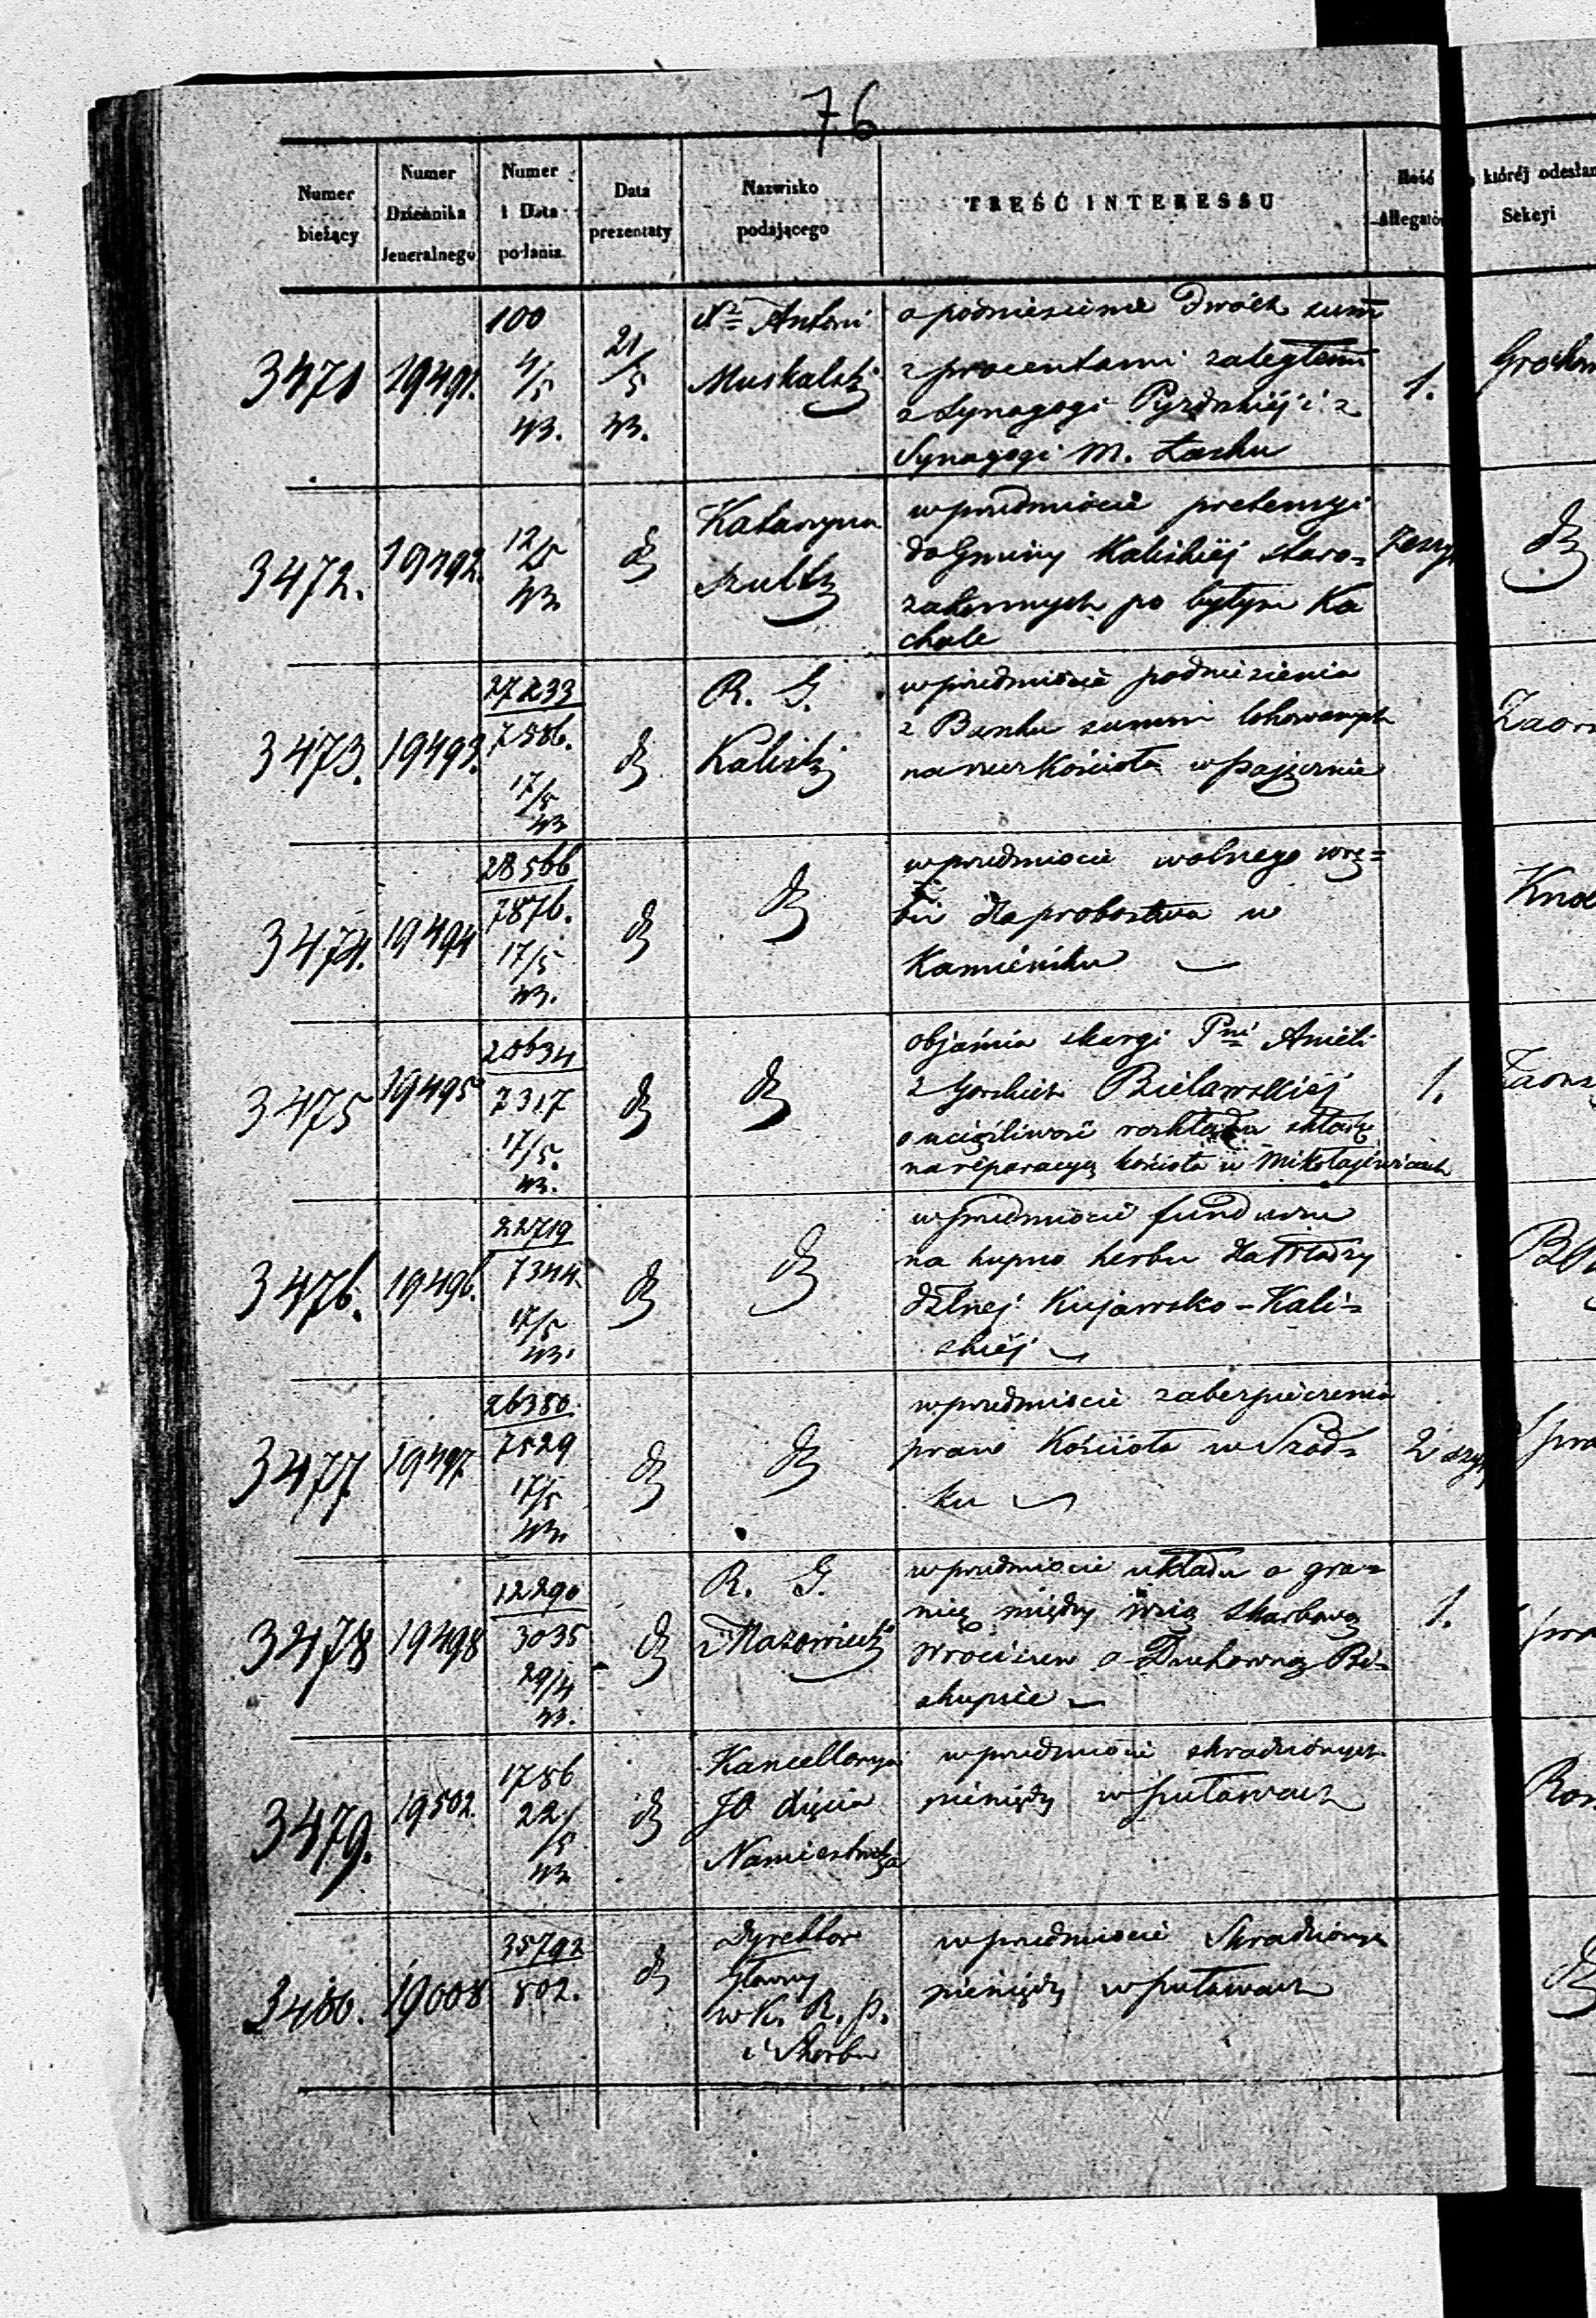 76
Numer bieżący
Numer Dziennika Jeneralnego
Numer i Data podania
Data prezentaty
Nazwisko podającego
TREŚĆ INTERESSU
Ilość Allegatów
któréj odesłan
Sekcyi
3471
19491.
100
4/5
43.
21/5
43.
Xz Antoni
Muskalski
o podniesienie dwóch summ
z procentami zaległemi
z Synagogi Pyzdrskiéj i z
Synagogi M. Łasku
1.
3472.
19492.
12/5
43
Katarzyna
Szultz
w przedmiocie pretensyi
do Gminy Kaliskiéj staro-
zakonnych po byłym Ka
chale
3473.
19493.
27233
7586.
17/5
43
R. G.
Kaliski
w przedmiocie podniesienia
z Banku summ lokowanych
na rzecz Kościoła w Pajęcznie
3474.
19494
28566
7876.
17/5
43.
w przedmiocie wolnego wrę=
bu dla probostwa w
Kamieńsku
3475
19495
20634
7317
17/5.
43.
objaśnia skargi Pni Anieli
z Gorskich Bielawskiéj
o uciążliwość rozkładu składki
na reparacyą kościoła w Mikołajewicach
1.
3476.
19496.
22719
7344.
17/5
43.
w przedmiocie funduszu
na kupno herbu dla Władzy
dylnej Kujawsko-Kali=
skiéj
3477
19497.
26380.
7529
17/5
43.
w przedmiocie zabezpieczenia
praw Kościoła w Szad=
ku
3478
19498
12290
3035
29/4
43.
R. G.
Mazowiecki
w przedmiocie układu o gra=
nicę między wsią Skarbową
Wrociszew a Duchowną Bi=
skupice
1.
3479.
19502.
1786
22/5
43
Kancellarya
JO Xięcia
Namiestnika
w przedmiocie skradzionych
pieniędzy w Puławach
3480.
19008
35792
502.
Dyrektor
Główny
w K. R. P.
i Skarbu
w przedmiocie Skradzionych
pieniędzy w Puławach